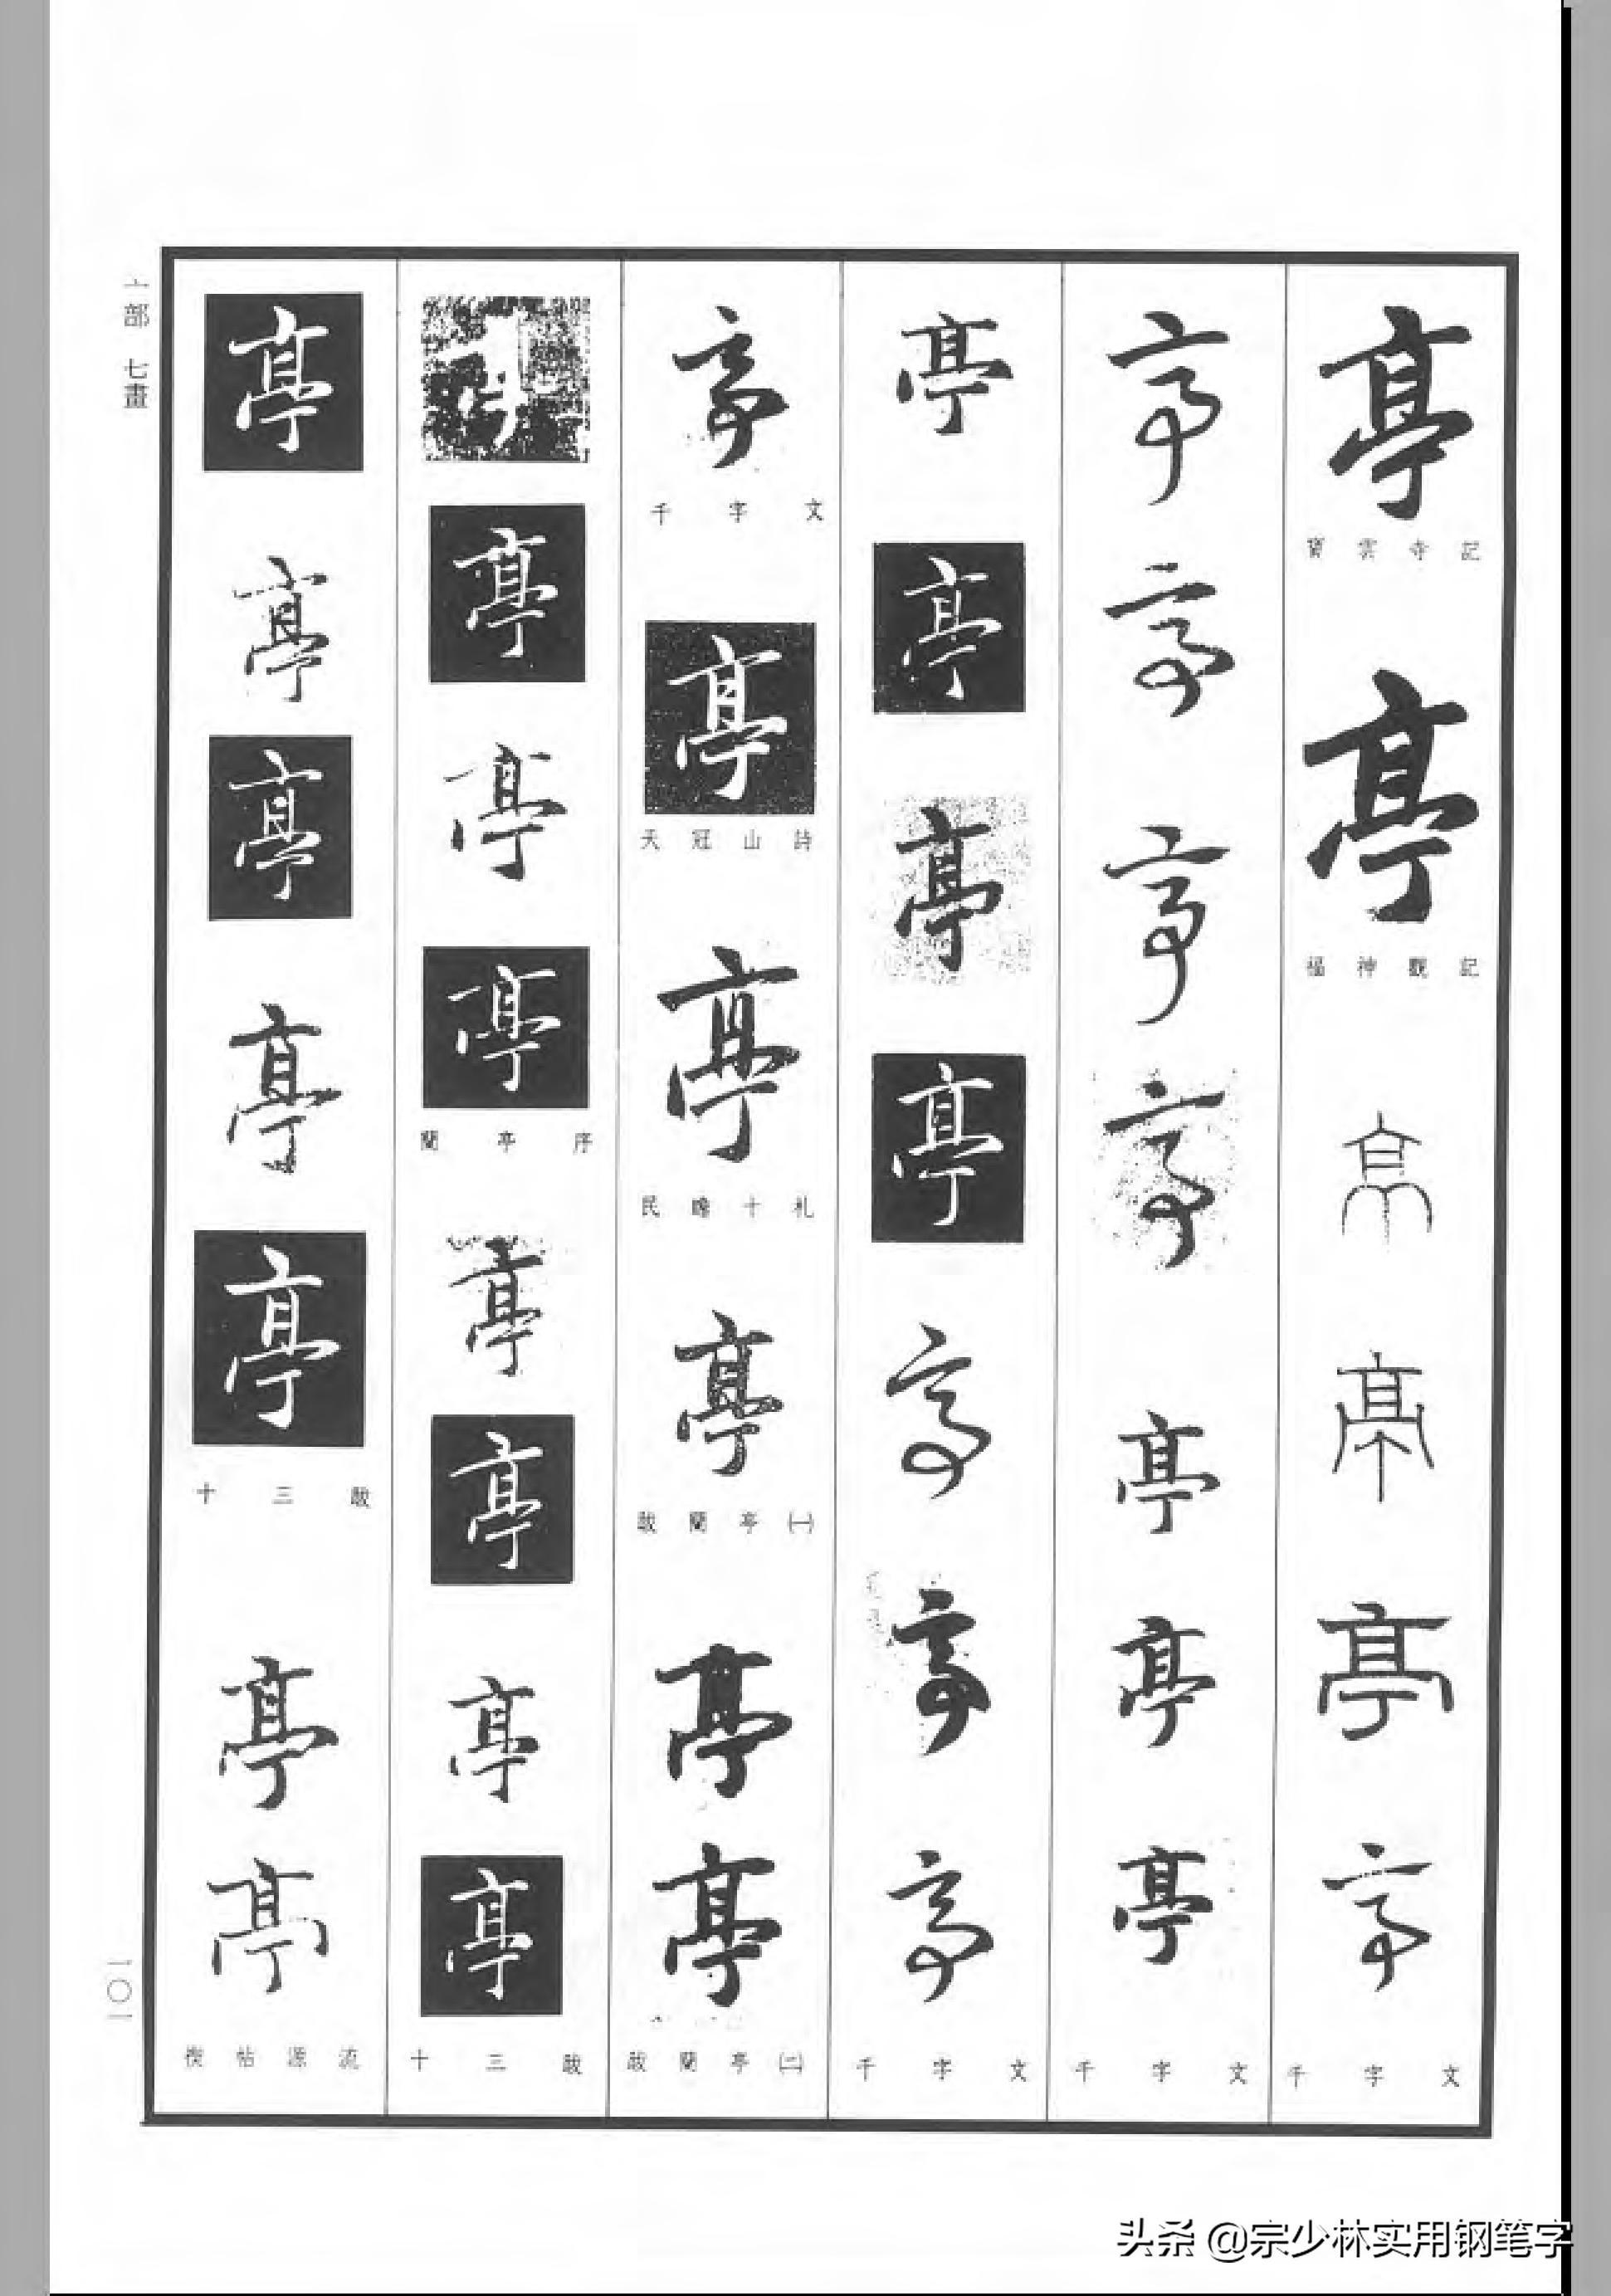 亭
寶雲寺記
亭
福神觀記
亭
亭
亭
亭
千字文
亭
亭
亭
亭
亭
亭
亭
千字文
亭
亭
亭
亭
亭
亭
亭
千字文
亭
千字文
亭
天冠山詩
亭
民瞻十札
亭
跋蘭亭(一)
亭
亭
跋蘭亭(二)
亭
亭
亭
蘭亭序
亭
亭
亭
亭
十三跋
亭
亭
亭
亭
亭
十三跋
亭
亭
禊帖源流
亠部 七畫
一〇一
头条 @宗少林实用钢笔字